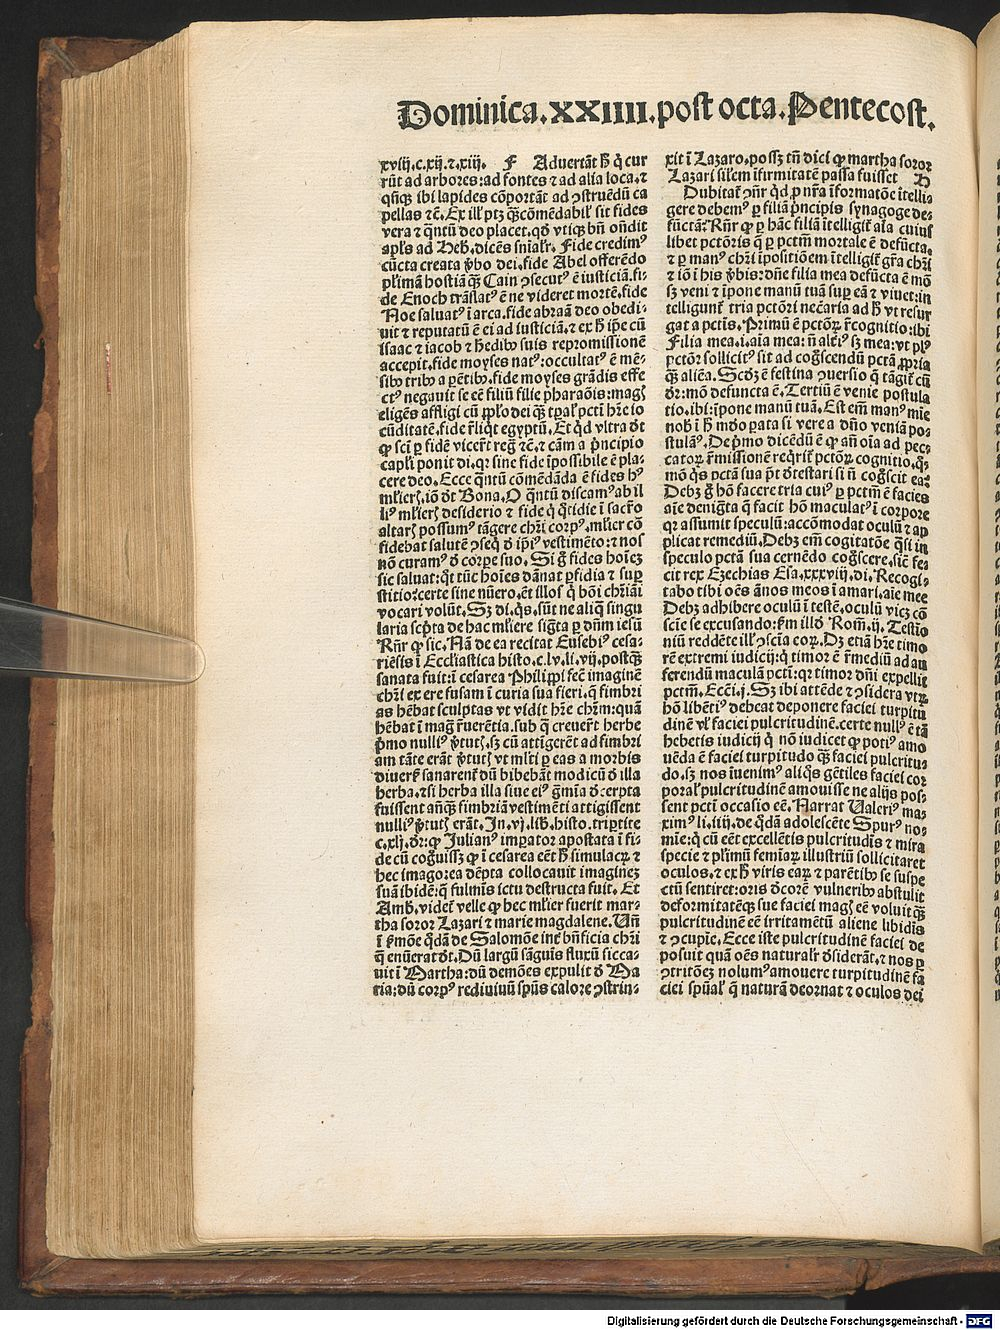 Dominica.XXIIII.post octa.Pentecost.
xviij.c.xij.⁊.xiij. F Aduertāt ħ q̇ cur
rūt ad arbores:ad fontes ⁊ ad alia loca.⁊
qn̄qꝫ ibi lapides cōportāt ad ꝯstruēdū ca
pellas ⁊c̄. Ex illꝭ ptꝫ qꝫ cōmēdabilꝭ sit fides
vera ⁊ q̄ntū deo placet.qd̓ vtiqꝫ bn̄ oñdit
apl̓s ad Heb̓.dicēs sn̄ialr̓. Fide credimꝰ
cūcta creata ꝟbo dei.fide Abel offerēdo
pl̓imā hostiā qꝫ Cain ꝯsecutꝰ ē iusticiā.fi-
de Enoch trāslatꝰ ē ne videret mortē.fide
Noe saluatꝰ ī arca.fide abraā deo obedi-
uit ⁊ reputatū ē ei ad iusticiā.⁊ ex ħ ip̄e cū
Isaac ⁊ iacob ⁊ hedibꝰ suis repromissionē
accepit.fide moyses natꝰ:occultatꝰ ē mē-
sibꝰ tribꝰ a parētibꝰ.fide moyses grādis effe
ctꝰ negauit se eē filiū filie pharaōis:magꝭ
eligēs affligi cū pplo dei qꝫ tꝑalꝭ pcti hr̄e io
cūditatē.fide r̓liq̇t egyptū. Et qd̓ vltra d̓t
ꝙ sci ꝑ fidē vicer̄t regꝭ ⁊c̄.⁊ cām a p̓ncipio
capl̓i ponit di.qꝛ sine fide īpossibile ē pla-
cere deo. Ecce q̄ntū cōmēdāda ē fides hꝰ
ml̓ierꝭ.iō d̓t Bona. O q̄ntū discamꝰ ab il
liꝰ ml̓ierꝭ desiderio ⁊ fide q̇ q̄tidie ī sacr̓o
altarꝭ possumꝰ tāgere chr̄i corpꝰ.ml̓ier cō
fidebat salutē ꝯseq̇ d̓ ip̄iꝰ vestimēto:⁊ nos
nō curamꝰ d̓ corꝑe suo. Si g̊ fides hoīeꝫ
sic saluat:q̄t tūc hoīes dānat ꝑfidia ⁊ suꝑ
stitio:certe sine nūero.⁊t illosꝰ q̇ boi chr̄iāi
vocari volūt. Sꝫ di.q̇s.sūt ne aliq̄ singu
laria scp̄ta de hac ml̓iere sig̅ta ꝑ dn̄m iesū
Rn̄r ꝙ sic. Nā de ea recitat Eusebiꝰ cesa-
riēsis ī Eccl̓iastica histo.c.lv.li.vij.postqꝫ
sanata fuit:ī cesarea Philippi fec̄ imaginē
chr̄i ex ere fusam ī curia sua fieri.q̄ fimbri
as hēbat sculptas vt vidit hr̄e chr̄m:quā
hēbat ī magꝭ r̓uerētia.sub q̄ creuer̄t herbe
p̓mo nulliꝰ ꝟtutꝭ.sꝫ cū attigerēt ad fimbri
am tāte erāt ꝟtutꝭ vt ml̓ti ꝑ eas a morbis
diuersꝭ sanarent̄ dū bibebāt modicū d̓ illa
herba.⁊ si herba illa siue eiꝰ gͤmīa d̓:cerpta
fuissent añqꝫ fimbriā vestimēti attigissent
nulliꝰ ꝟtutꝭ erāt. In.vj.lib̓.histo.tripertite
c.xlj.d̓r:ꝙ Julianꝰ imꝑator apostata ī fi-
de cū cog̓uissꝫ ꝙ ī cesarea eēt ħ simulacꝝ ⁊
hec imagorea dēpta collocauit imagineꝫ
suā ibidē:q̄ fulmīs ictu destructa fuit. Et
Amb̓.videt̄ velle ꝙ hec ml̓ier fuerit mar-
tha soror Lazari ⁊ marie magdalene. Un̄
ī ẜmōe q̄dā de Salomōe int̓ bn̄ficia chr̄i
q̄ enūerat d̓t. Dū largū sāguis fluxū sicca-
uit ī Martha:dū demōes expulit d̓ Ma
ria:dū corpꝰ rediuiuū sp̄us calore ꝯstrin-
xit ī Lazaro.possꝫ tn̄ dici ꝙ martha soror
Lazari sil̓em īfirmitatē passa fuisset H
Dubitat̄ ꝯn̄r qd̓ ꝓ nr̄a īformatōe ītellig
gere debemꝰ ꝑ filiā p̓ncipis synagoge de-
fūctā. Rn̄r ꝙ ꝑ hāc filiā ītelligit̄ aīa cuiuſ
libet pctōris q̄ ꝑ pctm̄ mortale ē defūcta.
⁊ ꝑ manꝰ chr̄i īpositiōem ītelligit̄ gr̄a chr̄i
⁊ iō ī his ꝟbis:dn̄e filia mea defūcta ē mō
sꝫ veni ⁊ īpone manū tuā suꝑ eā ⁊ viuet:in
telligunt̄ tria pctōri nec̄aria ad ħ vt resur
gat a pctis. Primū ē pctōꝝ r̓cognitio:ibi
Filia mea.i.aīa mea:n̄ alt̓iꝰ sꝫ mea:vt plꝰ
pctōr sollicitꝰ sit ad cog̓scendū pctā ꝓpria
qꝫ aliēa. Scd̓ꝫ ē festina ꝯuersio q̄ tāgit̄ cū
d̓r:mō defuncta ē. Tertiū ē venie postula
tio.ibi:īpone manū tuā. Est em̄ manꝰ mīe
nob̓ ī ħ mōo ꝑata si vere a dn̄o veniā po-
stulāꝰ. De p̓mo dicēdū ē ꝙ añ oīa ad pec-
catoꝝ r̓missionē req̇rit̄ pctōꝝ cognitio.q̇-
mō q̇s pctā sua p̄t d̓testari si n̄ cog̓scit ea:
Debꝫ g̊ hō facere tria cuiꝰ ꝑ pctm̄ ē facies
aīe denigͣta q̄ facit hō maculatꝰ ī corpore
qꝛ assumit speculū:accōmodat oculū ⁊ ap
plicat remediū. Debꝫ em̄ cogitatōe q̄si in
speculo pctā sua cernēdo cog̓scere.sic̄ fe-
cit rex Ezechias Esa.xxxviij.di. Recogi-
tabo tibi oēs ānos meos ī amari.aīe mee
Debꝫ adhibere oculū ī testē.oculū vicꝫ cō
sciē se excusando:ẜm illd̓ Rom̄.ij. Testīo
niū reddēte illꝭ ꝯscīa coꝝ. Dꝫ etiā hr̄e timo
rē extremi iudicij:q̇ timor ē r̓mediū ad au
ferendū maculā pcti:qꝛ timor dn̄i expellit
pctm̄. Ecci.j. Sꝫ ibi attēde ⁊ ꝯsidera vtꝝ
hō libētiꝰ debeat deponere faciei turpitu
dinē vl̓ faciei pulcritudinē.certe nullꝰ ē tā
hebetis iudicij q̇ nō iudicet ꝙ potiꝰ amo
uēda ē faciei turpitudo qꝫ faciei pulcritu-
do.sꝫ nos īuenimꝰ aliq̇s gētiles faciei cor
poralꝭ pulcritudinē amouisse ne alijs pos-
sent pcti occasio eē. Narrat Ualeriꝰ ma-
ximꝰ li.iiij.de q̇dā adolescēte Spurꝰ no-
mīe:q̇ cū eēt excellētis pulcritudis ⁊ mira
specie ⁊ pl̓imū femīaꝝ illustriū sollicitaret
oculos.⁊ ex ħ viris eaꝝ ⁊ parētibꝰ se suspe
ctū sentiret:oris d̓corē vulneribꝰ abstulit
deformitatēqꝫ sue faciei magꝭ eē voluit qꝫ
pulcritudinē eē irritamētū aliene libidis
⁊ ꝯcupīe. Ecce iste pulcritudinē faciei de
posuit quā oēs naturalr̓ d̓siderāt.⁊ nos ꝑ
ꝯtritōeꝫ nolumꝰ amouere turpitudinē fa
ciei sp̄ualꝭ q̄ naturā deornat ⁊ oculos dei
Digitalisierung gefördert durch die Deutsche Forschungsgemeinschaft - DFG